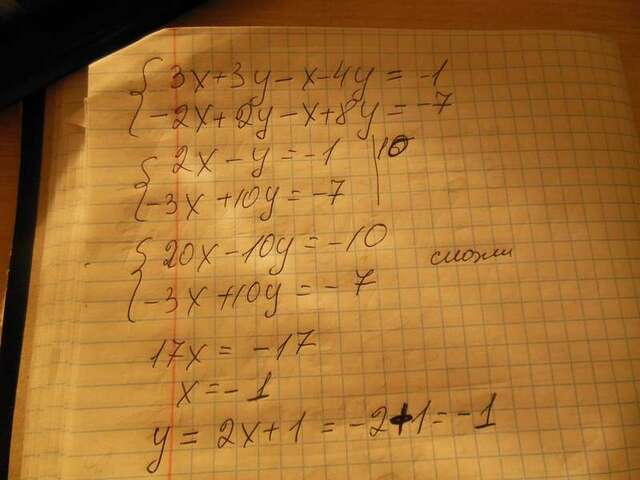 { 3x+3y-x-4y=-1
-2x+2y-x+8y=-7
{ 2x-y=-1 | 10
-3x+10y=-7
{ 20x-10y=-10
-3x+10y=-7
сложи
17x=-17
x=-1
y=2x+1=-2+1=-1